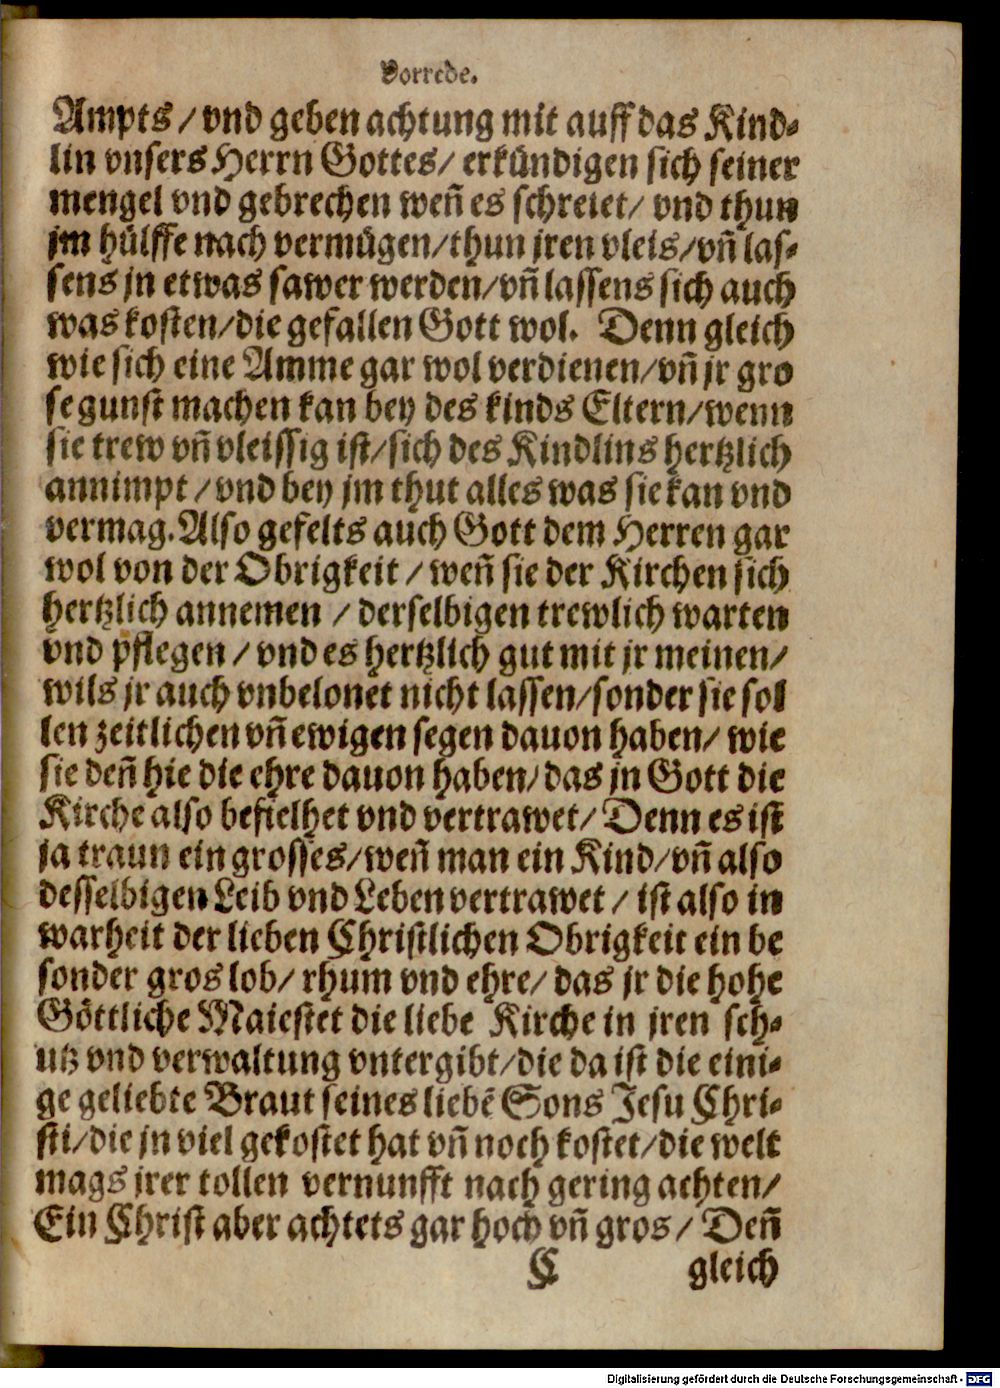 Vorrede.
Ampts / vnd geben achtung mit auff das Kind⸗
lin vnsers Herrn Gottes / erkündigen sich seiner
mengel vnd gebrechen weñ es schreiet / vnd thun
jm hülffe nach vermügen / thun jren vleis / vñ las⸗
sens jn etwas sawer werden / vñ lassens sich auch
was kosten / die gefallen Gott wol. Denn gleich
wie sich eine Amme gar wol verdienen / vñ jr gro
se gunst machen kan bey des kinds Eltern / wenn
sie trew vñ vleissig ist / sich des Kindlins hertzlich
annimpt / vnd bey jm thut alles was sie kan vnd
vermag. Also gefelts auch Gott dem Herren gar
wol von der Obrigkeit / weñ sie der Kirchen sich
hertzlich annemen / derselbigen trewlich warten
vnd pflegen / vnd es hertzlich gut mit jr meinen /
wils jr auch vnbelonet nicht lassen / sonder sie sol
len zeitlichen vñ ewigen segen dauon haben / wie
sie deñ hie die ehre dauon haben / das jn Gott die
Kirche also befielhet vnd vertrawet / Denn es ist
ja traun ein grosses / weñ man ein Kind / vñ also
desselbigen Leib vnd Leben vertrawet / ist also in
warheit der lieben Christlichen Obrigkeit ein be
sonder gros lob / rhum vnd ehre / das jr die hohe
Göttliche Maiestet die liebe Kirche in jren sch⸗
utz vnd verwaltung vntergibt / die da ist die eini⸗
ge geliebte Braut seines liebẽ Sons Jesu Chri⸗
sti / die jn viel gekostet hat vñ noch kostet / die welt
mags jrer tollen vernunfft nach gering achten /
Ein Christ aber achtets gar hoch vñ gros / Deñ
C gleich
Digitalisierung gefördert durch die Deutsche Forschungsgemeinschaft - DFG